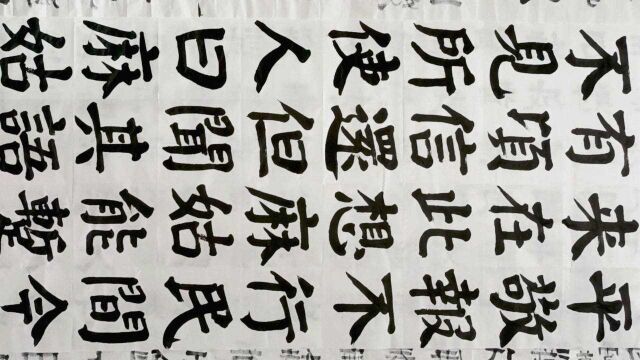 平敬報不行民間今
来在此想麻姑能蹔
有頃信還但聞其語
不見所使人曰麻姑